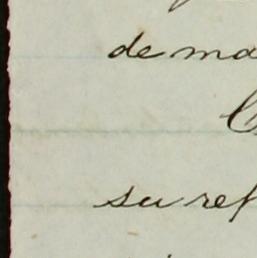 de ma
su ref